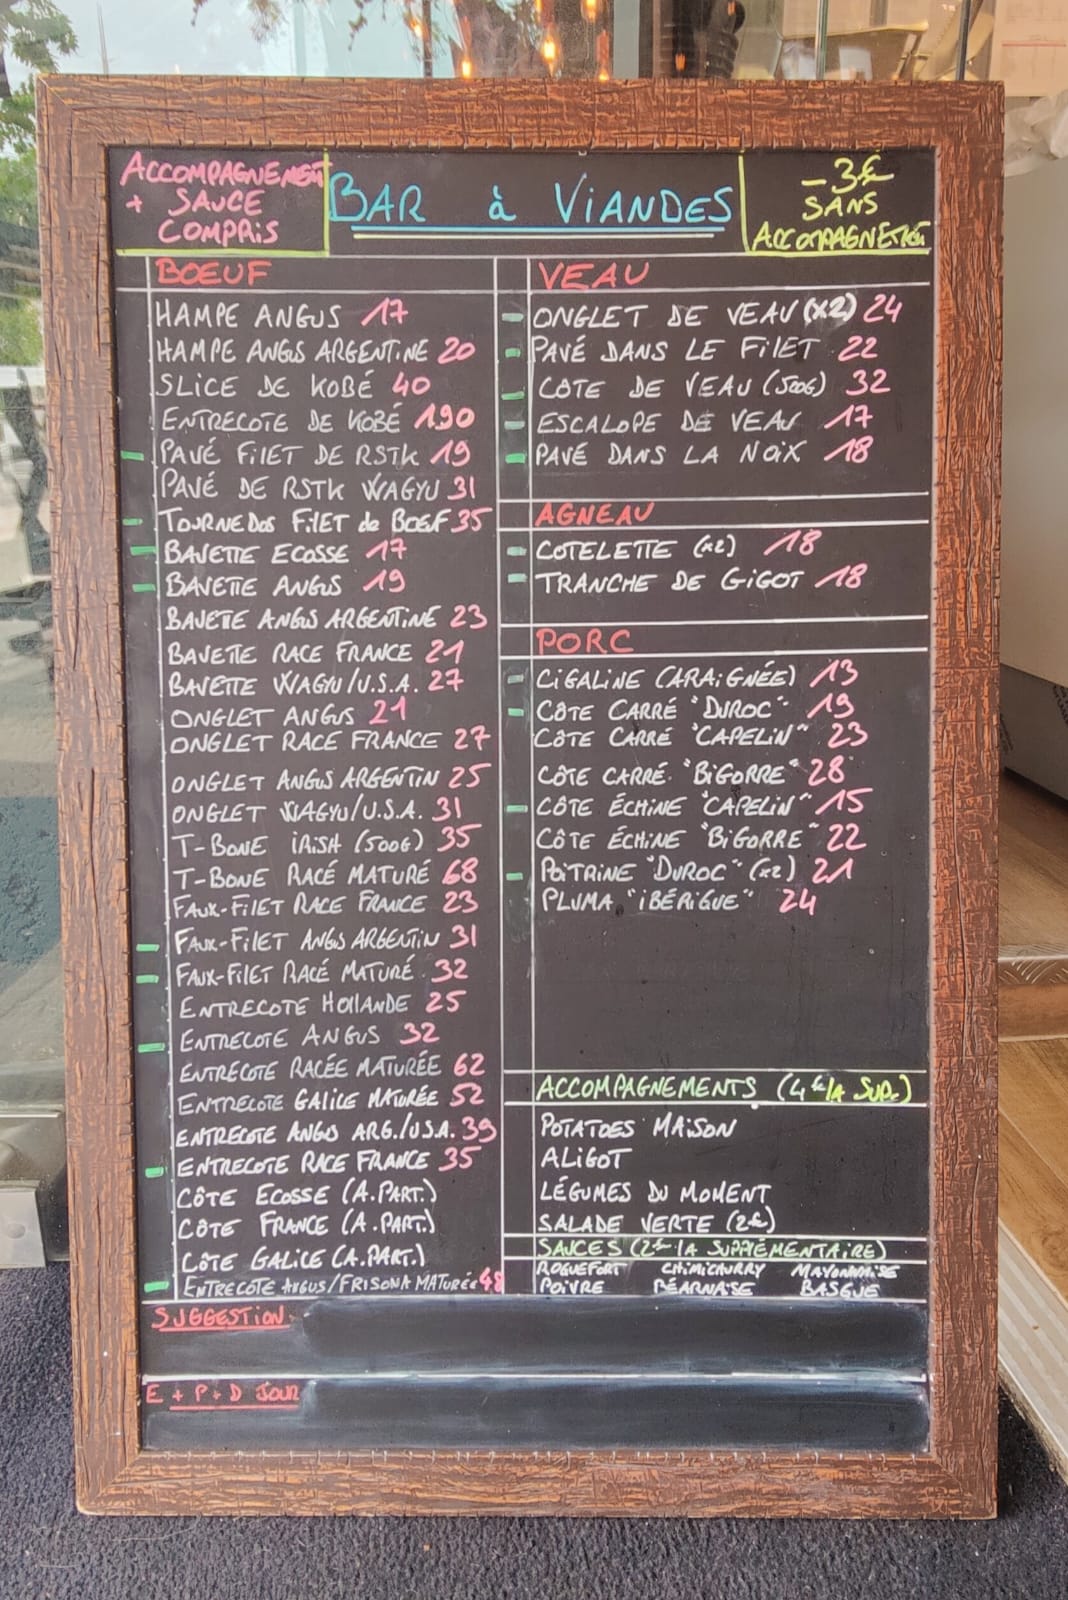 ACCOMPAGNEMENT
+ SAUCE
COMPRIS
BAR à VIANDES
-3€
SANS
ACCOMPAGNEMENT
BOEUF
HAMPE ANGUS 17
HAMPE ANGUS ARGENTINE 20
SLICE DE KOBÉ 40
ENTRECOTE DE KOBÉ 190
PAVÉ FILET DE RSTK 19
PAVÉ DE RSTK WAGYU 31
TOURNEDOS FILET de BOEUF 35
BAVETTE ECOSSE 17
BAVETTE ANGUS 19
BAVETTE ANGUS ARGENTINE 23
BAVETTE RACE FRANCE 21
BAVETTE WAGYU/U.S.A. 27
ONGLET ANGUS 21
ONGLET RACE FRANCE 27
ONGLET ANGUS ARGENTIN 25
ONGLET WAGYU/U.S.A. 31
T-BONE IRISH (500G) 35
T-BONE RACÉ MATURÉ 68
FAUX-FILET RACE FRANCE 23
FAUX-FILET ANGUS ARGENTIN 31
FAUX-FILET RACÉ MATURÉ 32
ENTRECOTE HOLLANDE 25
ENTRECOTE ANGUS 32
ENTRECOTE RACÉE MATURÉE 62
ENTRECOTE GALICE MATURÉE 52
ENTRECOTE ANGUS ARG./USA. 39
ENTRECOTE RACE FRANCE 35
CÔTE ECOSSE (A.PART.)
CÔTE FRANCE (A.PART.)
CÔTE GALICE (A.PART.)
ENTRECOTE ANGUS/FRISONA MATURÉE 48
VEAU
ONGLET DE VEAU (X2) 24
PAVÉ DANS LE FILET 22
CÔTE DE VEAU (500G) 32
ESCALOPE DE VEAU 17
PAVÉ DANS LA NOIX 18
AGNEAU
COTELETTE (x2) 18
TRANCHE DE GIGOT 18
PORC
CIGALINE (ARAIGNÉE) 13
CÔTE CARRÉ "DUROC" 19
CÔTE CARRÉ "CAPELIN" 23
CÔTE CARRÉ "BIGORRE" 28
CÔTE ÉCHINE "CAPELIN" 15
CÔTE ÉCHINE "BIGORRE" 22
POITRINE "DUROC" (x2) 21
PLUMA "IBÉRIQUE" 24
ACCOMPAGNEMENTS (4€ LA SUP.)
POTATOES MAISON
ALIGOT
LÉGUMES DU MOMENT
SALADE VERTE (2€)
SAUCES (2€ LA SUPPLÉMENTAIRE)
ROQUEFORT CHIMICHURRY MAYONNAISE
POIVRE BÉARNAISE BASQUE
SUGGESTION
E + P + D JOUR